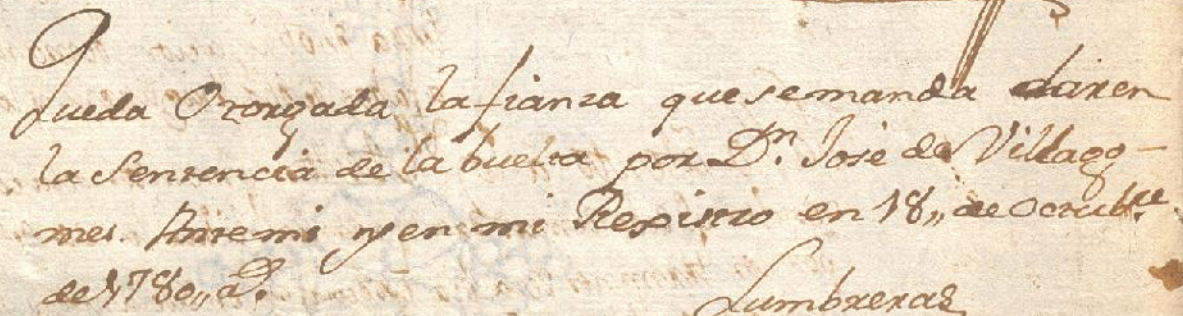 Queda Otorgada la fianza que se manda dar en
la Sentencia de la buelta por Dn. Jose de Villago-
mes. Antemi y en mi Registro en 18,, de Octubre.
de 1780,, as.
Lumbreras